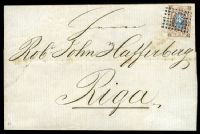 Rob. John Hafferberg
Riga.